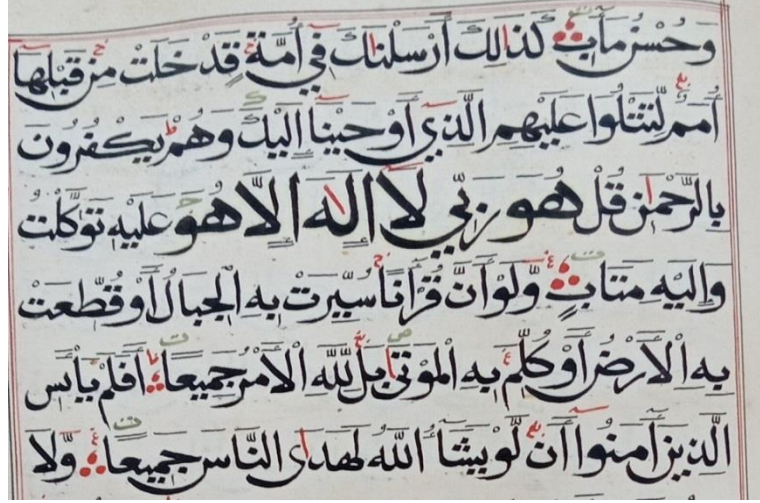 وَحُسْنُ مَاٰبٍ كَذٰلِكَ اَرْسَلْنٰكَ فِيْ اُمَّةٍ قَدْ خَلَتْ مِنْ قَبْلِهَا
اُمَمٌ لِّتَتْلُوَا عَلَيْهِمُ الَّذِيْ اَوْحَيْنَا اِلَيْكَ وَهُمْ يَكْفُرُوْنَ
بِالرَّحْمٰنِ قُلْ هُوَ رَبِّيْ لَا اِلٰهَ اِلَّا هُوَ عَلَيْهِ تَوَكَّلْتُ
وَاِلَيْهِ مَتَابِ وَلَوْ اَنَّ قُرْاٰنًا سُيِّرَتْ بِهِ الْجِبَالُ اَوْ قُطِّعَتْ
بِهِ الْاَرْضُ اَوْ كُلِّمَ بِهِ الْمَوْتٰى بَلْ لِّلّٰهِ الْاَمْرُ جَمِيْعًا اَفَلَمْ يَايْـَٔسِ
الَّذِيْنَ اٰمَنُوْا اَنْ لَّوْ يَشَآءُ اللّٰهُ لَهَدَى النَّاسَ جَمِيْعًا وَّلَا